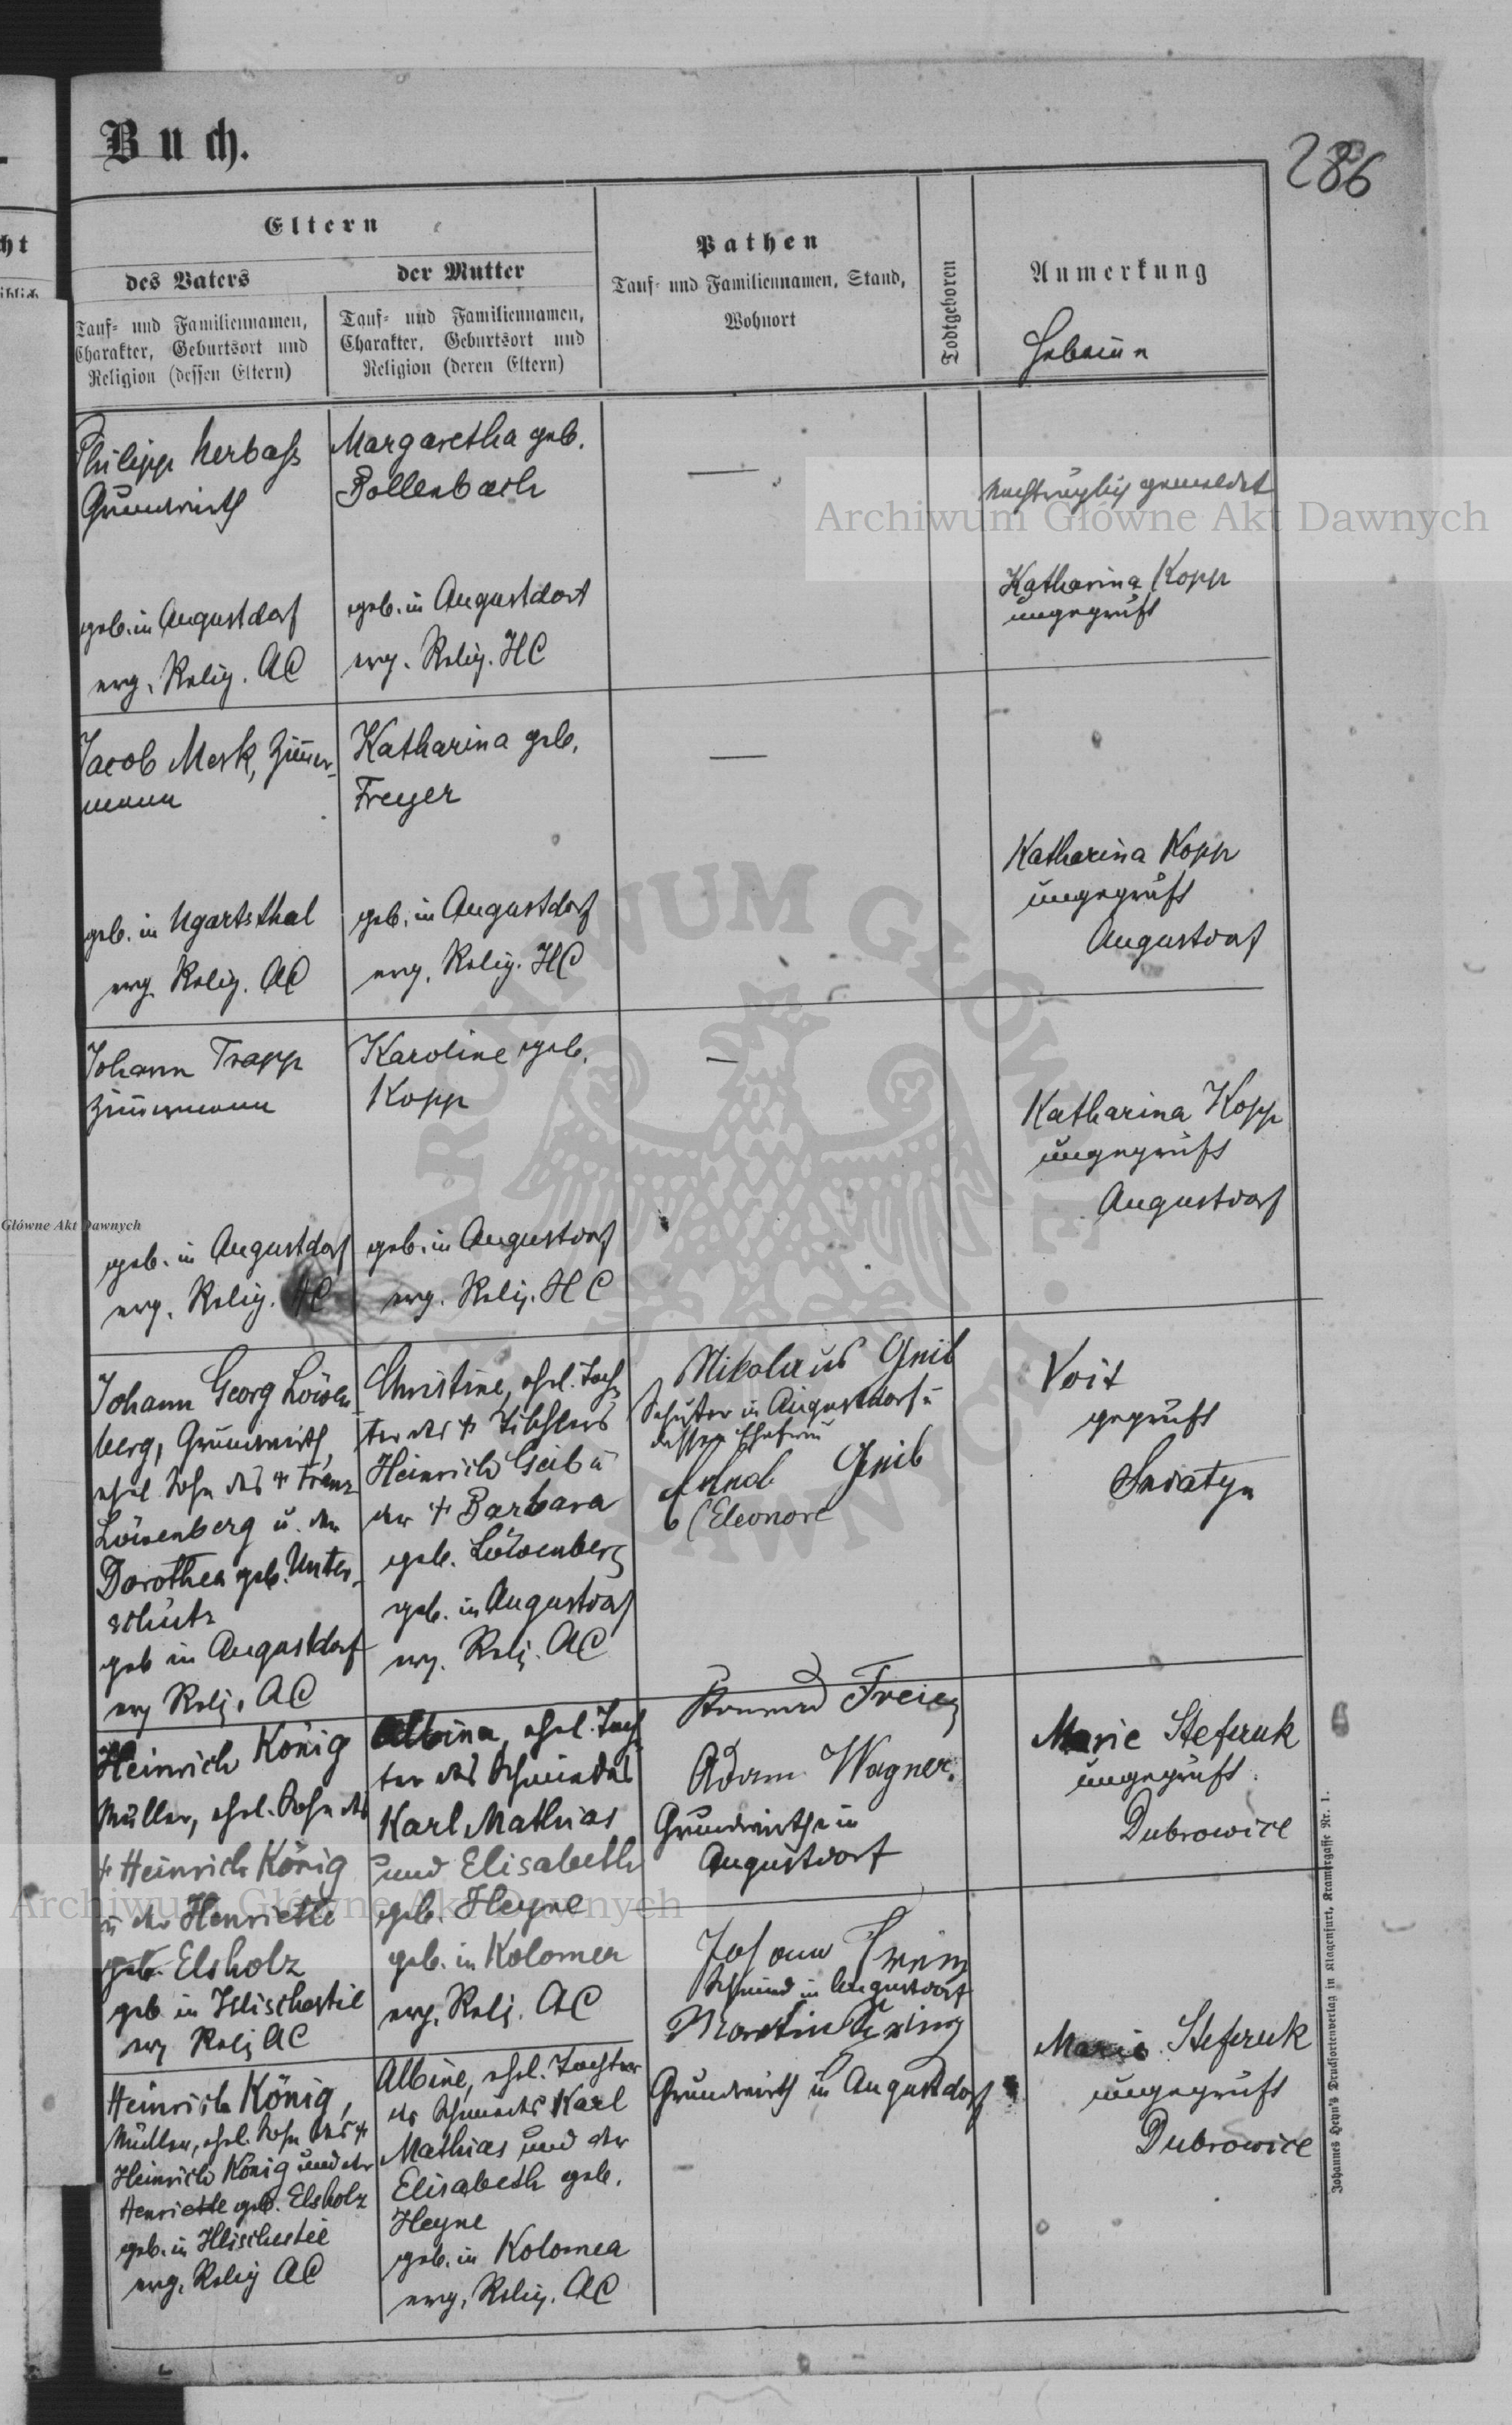 Buch.
286
Eltern
des Vaters
Tauf- und Familiennamen,
Charakter, Geburtsort und
Religion (dessen Eltern)
der Mutter
Tauf- und Familiennamen,
Charakter, Geburtsort und
Religion (deren Eltern)
Pathen
Tauf- und Familiennamen, Stand,
Wohnort
Todtgeboren
Anmerkung
Philipp Kerbaß
Grundwirth
geb. in Augustdorf
evg. Relig. AC
Margaretha geb.
Bollenbach
geb. in Augustdorf
evg. Relig. HC
—
nachträglich gemeldet
Katharina Kopp
ungeprüft
Jacob Merk, Zimer-
mann
geb. in Ugartsthal
evg. Relig. AC
Katharina geb.
Freyer
geb. in Augustdorf
evg. Relig. HC
—
Katharina Kopp
ungeprüft
Augustdorf
Johann Trapp
Zimmermann
geb. in Augustdorf
evg. Relig. AC
Karoline geb.
Kopp
geb. in Augustdorf
evg. Relig. HC
—
Katharina Kopp
ungeprüft
Augustdorf
Johann Georg Löwen-
berg, Grundwirth,
ehel. Sohn des † Franz
Löwenberg u. der
Dorothea geb. Unter-
schütz
geb in Augustdorf
evg Relig. AC
Christine, ehel. Toch-
ter des † Tischlers
Heinrich Geib u
der † Barbara
geb. Löwenberg
geb. in Augustdorf
evg. Relig. AC
Nikolaus Geib
Schuster in Augustdorf u
dessen Ehefrau
Geib
(Eleonore
Voit
geprüft
Sniatyn
Heinrich König
Müller, ehel. Sohn des
† Heinrich König
u der Henriette
geb. Elsholz
geb in Illischestie
evg Relig AC
Albina, ehel. Toch
ter des Schmiedes
Karl Mathias
und Elisabeth
geb. Heyne
geb. in Kolomea
evg. Relig. AC
Adam Wagner.
Grundwirthe in
Augustdorf
Marie Stefcruk
ungeprüft
Dubrowice
Heinrich König,
Müller, ehel. Sohn des †
Heinrich König und der
Henriette geb. Elsholz
geb. in Illischestie
evg. Relig AC
Albine, ehel. Tochter
des Schmieds Karl
Mathias und der
Elisabeth geb.
Heyne
geb. in Kolomea
evg. Relig. AC
Johann
Schmied in Augustdorf
Martin
Grundwirth in Augustdorf
Marie Stefcruk
ungeprüft
Dubrowice
Johannes Heyn's Drucksortenverlag in Klagenfurt, Kramergasse Nr. 1.
Archiwum Główne Akt Dawnych
Główne Akt Dawnych
ARCHIWUM GŁÓWNE AKT DAWNYCH
Archiwum Główne Akt Dawnych